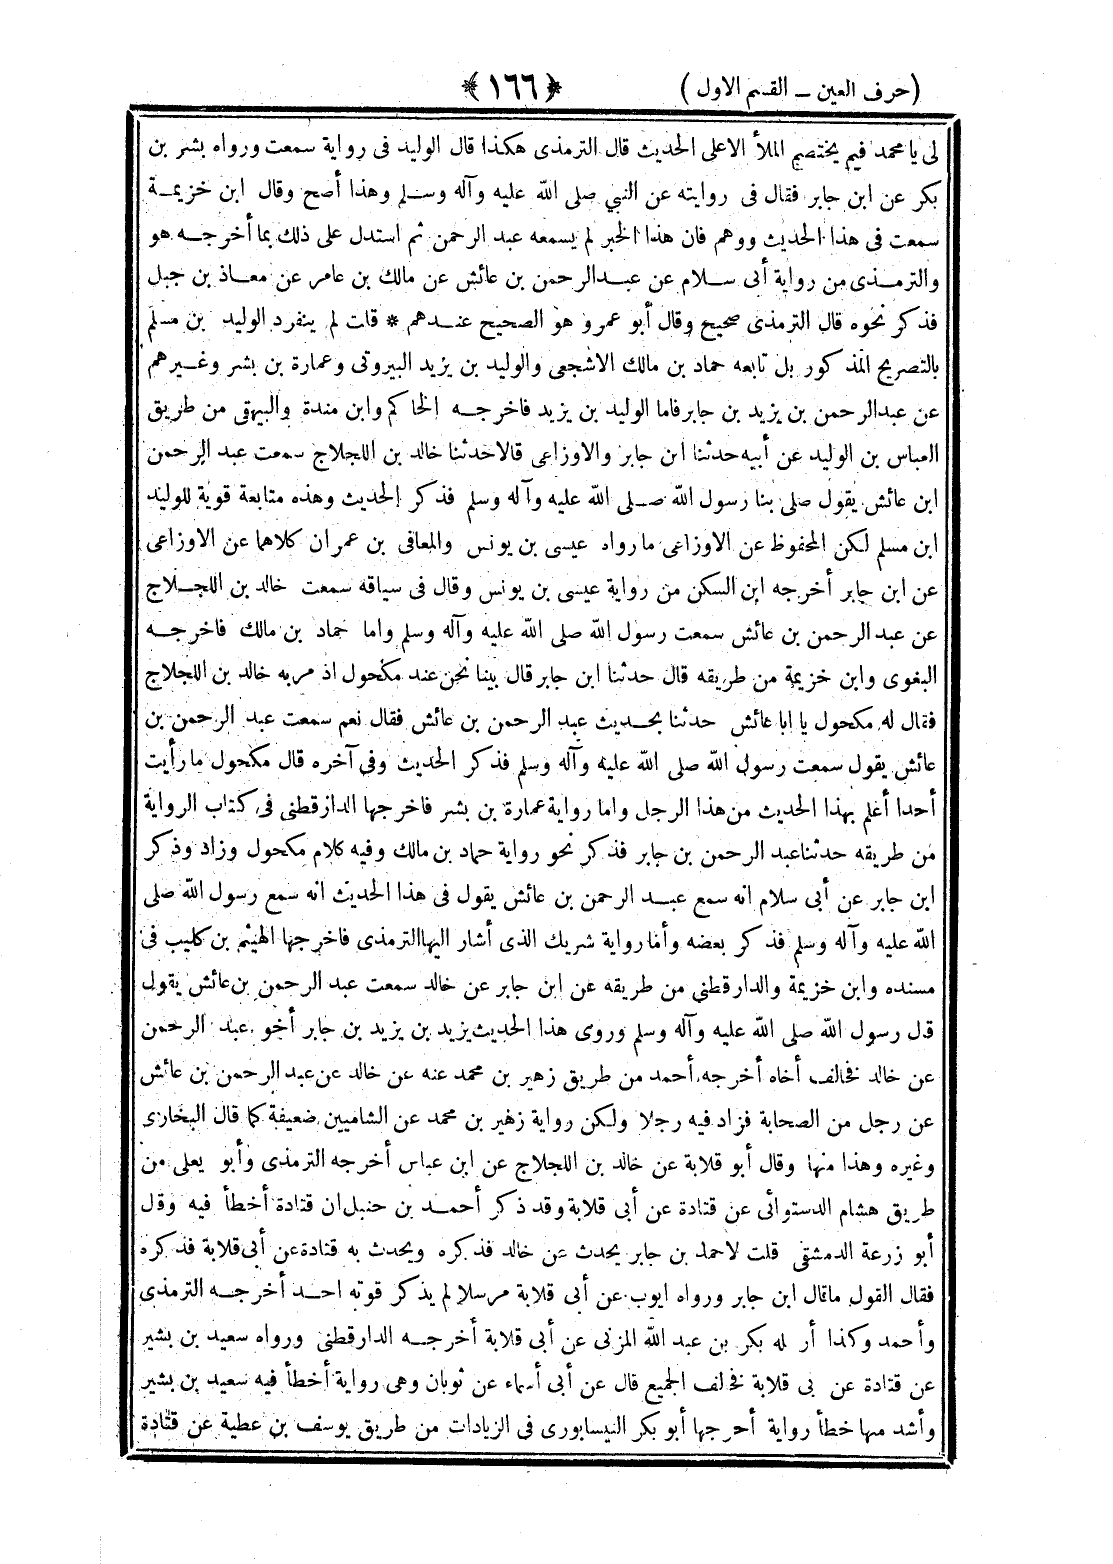 (حرف العين ــ القسم الاول) ﴿١٦٦﴾
لى يا محمد فيم يختصم الملأ الاعلى الحديث قال الترمذى هكذا قال الوليد فى رواية سمعت ورواه بشر بن
بكر عن ابن جابر فقال فى روايته عن النبي صلى الله عليه وآله وسلم وهذا أصح وقال ابن خزيمة
سمعت فى هذا الحديث ووهم فان هذا الخبر لم يسمعه عبد الرحمن ثم استدل على ذلك بما أخرجه هو
والترمذى من رواية أبى سلام عن عبدالرحمن بن عائش عن مالك بن عامر عن معاذ بن جبل
فذكر نحوه قال الترمذى صحيح وقال أبو عمرو هو الصحيح عندهم * قلت لم ينفرد الوليد بن مسلم
بالتصريح المذكور بل تابعه حماد بن مالك الاشجعى والوليد بن يزيد البيروتى وعمارة بن بشر وغيرهم
عن عبدالرحمن بن يزيد بن جابر فاما الوليد بن يزيد فاخرجه الحاكم وابن مندة والبيهقى من طريق
العباس بن الوليد عن أبيه حدثنا ابن جابر والاوزاعى قالا حدثنا خالد بن اللجلاج سمعت عبد الرحمن
ابن عائش يقول صلى بنا رسول الله صلى الله عليه وآله وسلم فذكر الحديث وهذه متابعة قوية للوليد
ابن مسلم لكن المحفوظ عن الاوزاعى مارواه عيسى بن يونس والمعافى بن عمران كلاهما عن الاوزاعى
عن ابن جابر أخرجه ابن السكن من رواية عيسى بن يونس وقال فى سياقه سمعت خالد بن اللجلاج
عن عبد الرحمن بن عائش سمعت رسول الله صلى الله عليه وآله وسلم واما حماد بن مالك فاخرجه
البغوى وابن خزيمة من طريقه قال حدثنا ابن جابر قال بينا نحن عند مكحول اذ مر به خالد بن اللجلاج
فقال له مكحول يا ابا عائش حدثنا بحديث عبد الرحمن بن عائش فقال نعم سمعت عبد الرحمن بن
عائش يقول سمعت رسول الله صلى الله عليه وآله وسلم فذكر الحديث وفى آخره قال مكحول ما رأيت
أحدا أعلم بهذا الحديث من هذا الرجل واما رواية عمارة بن بشر فاخرجها الدارقطنى فى كتاب الرواية
من طريقه حدثنا عبد الرحمن بن جابر فذكر نحو رواية حماد بن مالك وفيه كلام مكحول وزاد وذكر
ابن جابر عن أبى سلام انه سمع عبد الرحمن بن عائش يقول فى هذا الحديث انه سمع رسول الله صلى
الله عليه وآله وسلم فذكر بعضه وأما رواية شريك الذى أشار اليها الترمذى فاخرجها الهيثم بن كليب فى
مسنده وابن خزيمة والدارقطنى من طريقه عن ابن جابر عن خالد سمعت عبد الرحمن بن عائش يقول
قال رسول الله صلى الله عليه وآله وسلم وروى هذا الحديث يزيد بن يزيد بن جابر أخو عبد الرحمن
عن خالد فخالف أخاه أخرجه أحمد من طريق زهير بن محمد عنه عن خالد عن عبد الرحمن بن عائش
عن رجل من الصحابة فزاد فيه رجلا ولكن رواية زهير بن محمد عن الشاميين ضعيفة كما قال البخارى
وغيره وهذا منها وقال أبو قلابة عن خالد بن اللجلاج عن ابن عباس أخرجه الترمذى وأبو يعلى من
طريق هشام الدستوائى عن قتادة عن أبى قلابة وقد ذكر أحمد بن حنبل ان قتادة أخطأ فيه وقال
أبو زرعة الدمشقى قلت لاحمد بن جابر يحدث عن خالد فذكره ويحدث به قتادة عن أبى قلابة فذكره
فقال القول ما قال ابن جابر ورواه ايوب عن أبى قلابة مرسلا لم يذكر فوقه احد أخرجه الترمذى
وأحمد وكذا أر له بكر بن عبد الله المزنى عن أبى قلابة أخرجه الدارقطنى ورواه سعيد بن بشير
عن قتادة عن بى قلابة فخالف الجميع قال عن أبى أسماء عن ثوبان وهى رواية أخطأ فيه سعيد بن بشير
وأشد منها خطأ رواية أخرجها أبو بكر النيسابورى فى الزيادات من طريق يوسف بن عطية عن قتادة